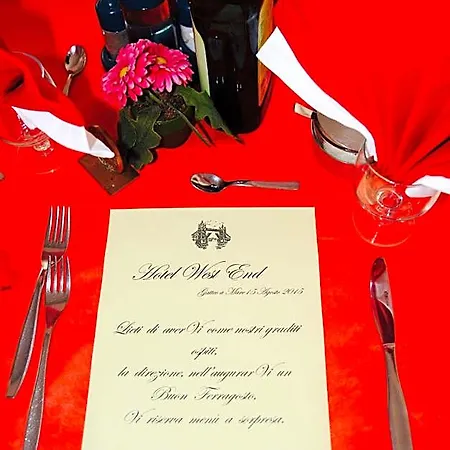 Hotel West End
Gatteo a Mare 15 Agosto 2015
Lieti di averVi come nostri graditi
ospiti,
la direzione, nell'augurarVi un
Buon Ferragosto,
Vi riserva menù a sorpresa.